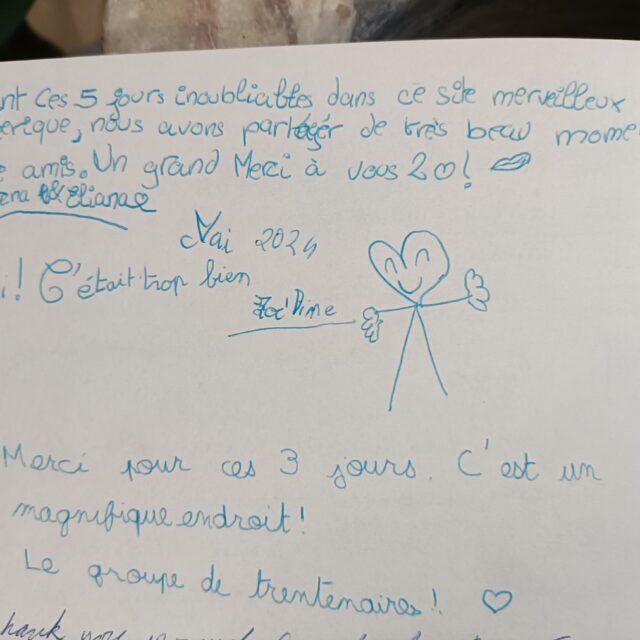 nt ces 5 jours inoubliables dans ce site merveilleux
erique, nous avons partéger de très beau mome
amis. Un grand Merci à vous 2 ! 
Eliana
Mai 2024
i! C'était trop bien
Merci pour ces 3 jours. C'est un
magnifique endroit!
Le groupe de trentenaires!
hank you